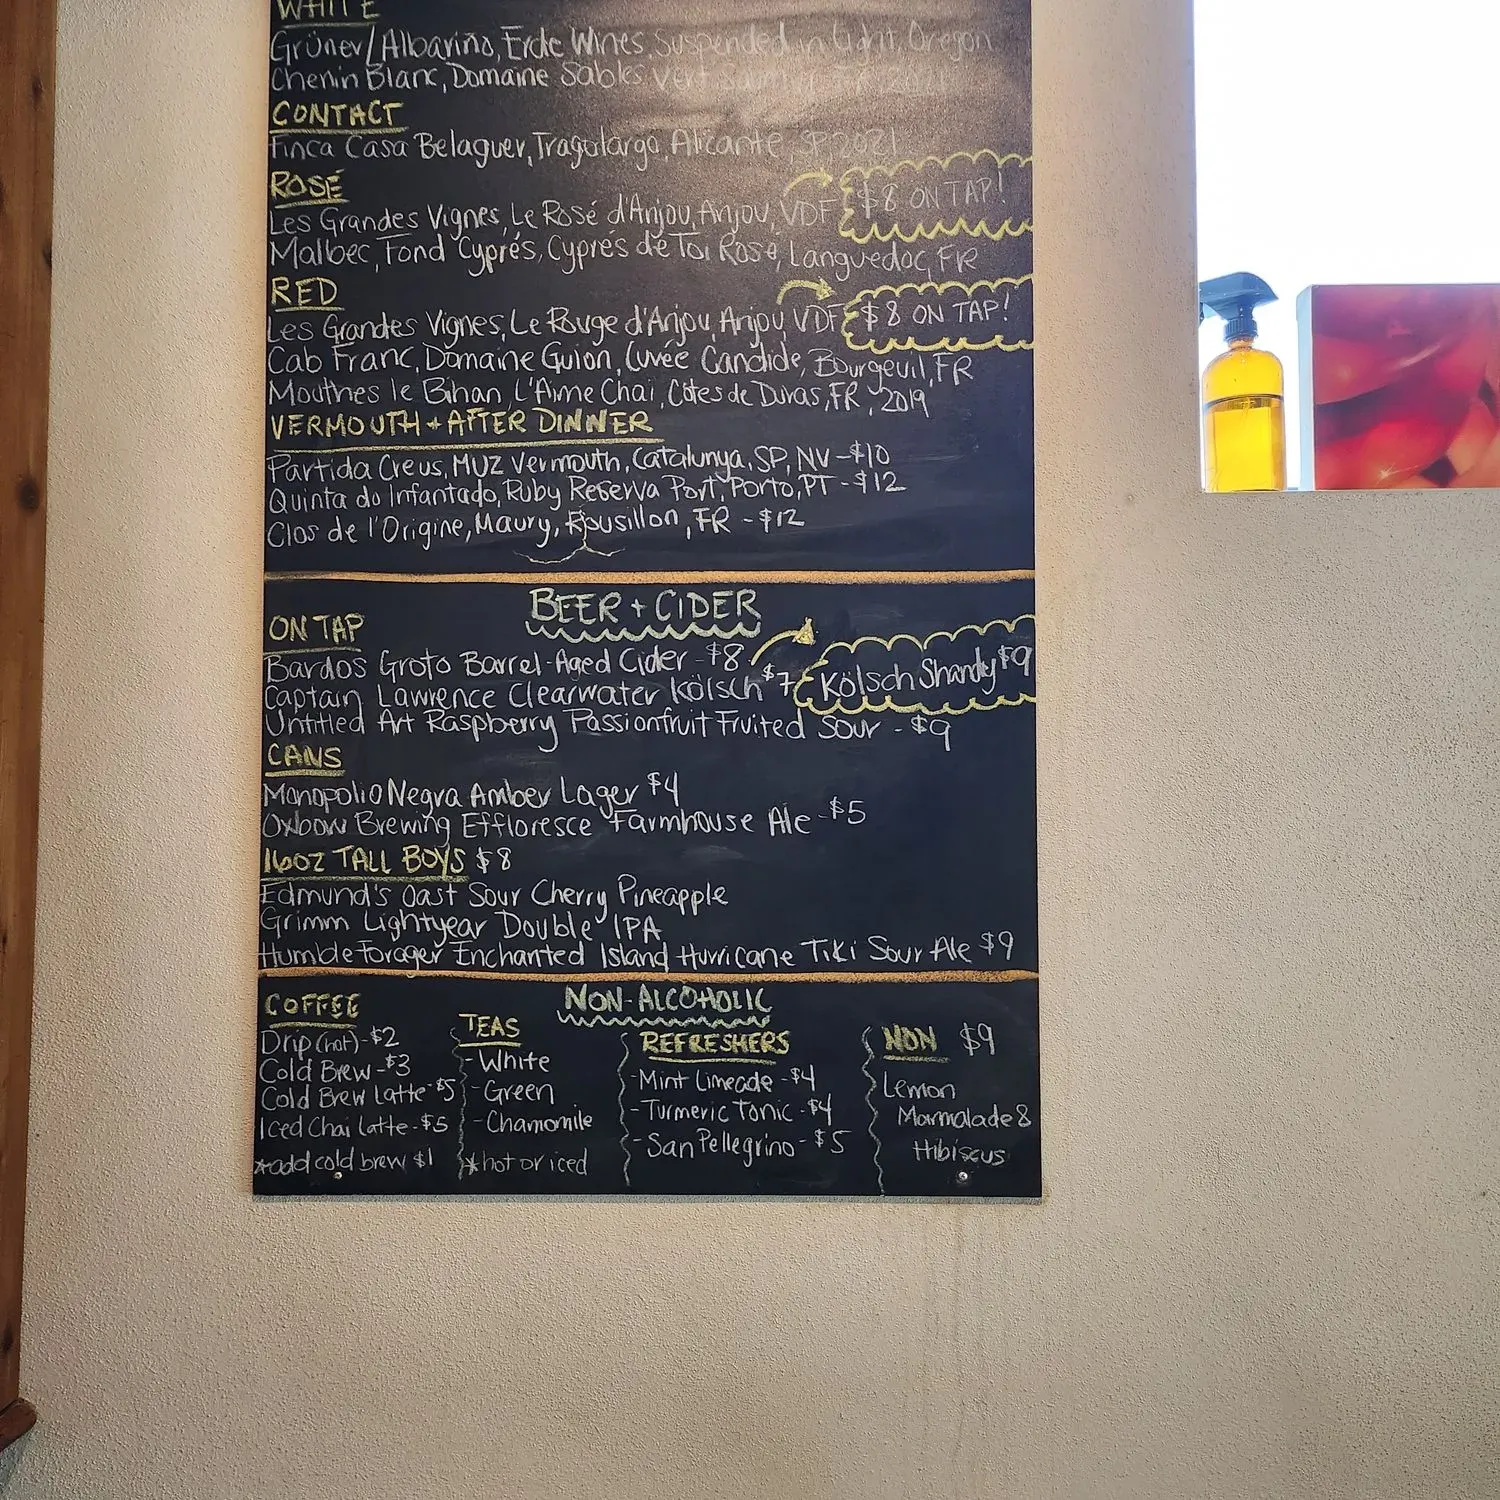 WHITE
Grüner/Albariño, Erde Wines, Suspended in Light, Oregon
Chenin Blanc, Domaine Sables Vert
CONTACT
Finca Casa Belaguer, Tragolargo, Alicante, SP, 2021
ROSÉ
Les Grandes Vignes, Le Rosé d'Anjou, Anjou, VDF $8 ON TAP!
Malbec, Fond Cyprés, Cyprés de Toi Rosé, Languedoc, FR
RED
Les Grandes Vignes, Le Rouge d'Anjou, Anjou VDF $8 ON TAP!
Cab Franc, Domaine Guion, Cuvée Candide, Bourgeuil, FR
Mouthes le Bihan L'Aime Chai, Côtes de Duras, FR, 2019
VERMOUTH + AFTER DINNER
Partida Creus, MUZ Vermouth, Catalunya, SP, NV - $10
Quinta do Infantado, Ruby Reserva Port, Porto, PT - $12
Clos de l'Origine, Maury, Rousillon, FR - $12
BEER + CIDER
ON TAP
Bardos Groto Barrel-Aged Cider - $8
Captain Lawrence Clearwater Kölsch $7 Kölsch Shandy $9
Untitled Art Raspberry Passionfruit Fruited Sour - $9
CANS
Monopolio Negra Amber Lager $4
Oxbow Brewing Effloresce Farmhouse Ale - $5
16oz TALL BOYS $8
Edmund's Oast Sour Cherry Pineapple
Grimm Lightyear Double IPA
Humble Forager Enchanted Island Hurricane Tiki Sour Ale $9
NON-ALCOHOLIC
COFFEE
Drip (hot) - $2
Cold Brew - $3
Cold Brew Latte - $5
Iced Chai Latte - $5
*add cold brew $1
TEAS
- White
- Green
- Chamomile
*hot or iced
REFRESHERS
- Mint Limeade - $4
- Turmeric Tonic - $4
- San Pellegrino - $5
NON $9
Lemon
Marmalade &
Hibiscus